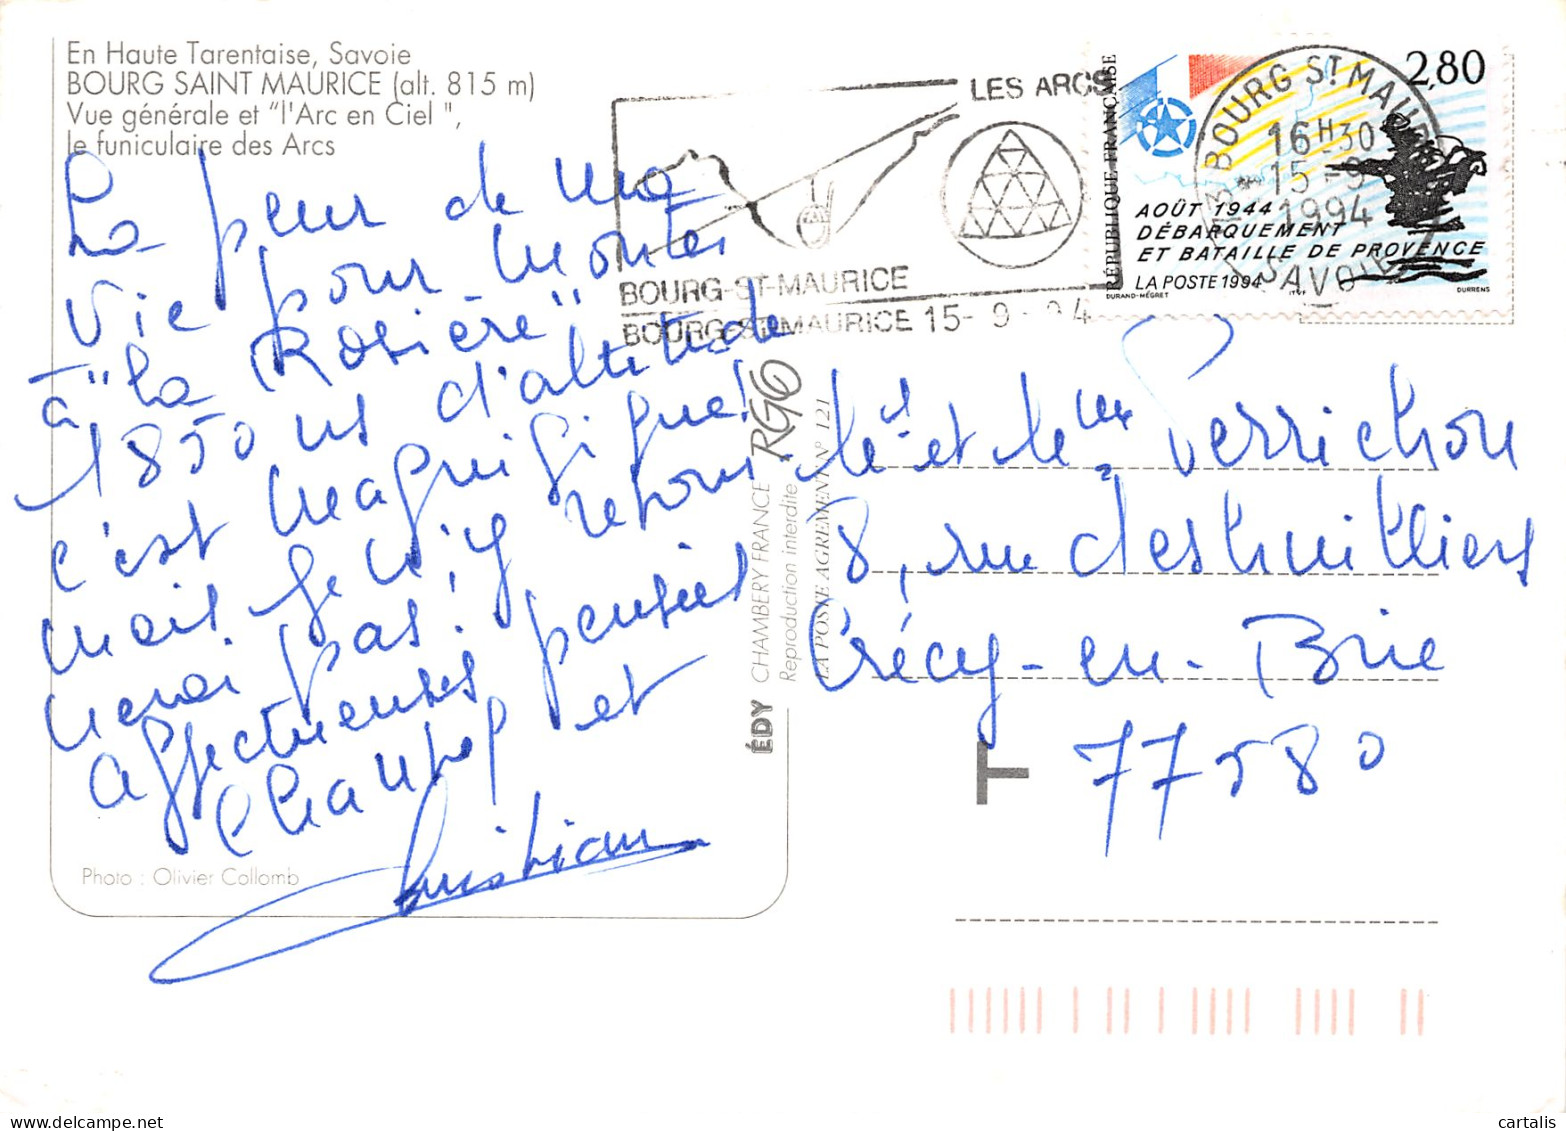 En Haute Tarentaise, Savoie
BOURG SAINT MAURICE (alt. 815 m)
Vue générale et "l'Arc en Ciel ",
le funiculaire des Arcs
La peur de ma
vie pour monter
à "La Rosière"
1850 ms d'altitude
c'est magnifique!
mais je n'y retour
nerai pas!
Affectueuses pensées
Chaupof et
Christian
Photo : Olivier Collomb
ÉDY CHAMBERY FRANCE
Reproduction interdite
LA POSTE AGREMENT N° 121
LES ARCS
BOURG-ST-MAURICE
BOURG-ST-MAURICE 15- 9 - 94
BOURG ST MAURICE
16H30
15 -9
1994
SAVOIE
RÉPUBLIQUE FRANÇAISE
2,80
AOÛT 1944
DÉBARQUEMENT
ET BATAILLE DE PROVENCE
LA POSTE 1994
DURAND-MÉGRET ITVF DURRENS
Mr et Mme Perrichon
8, rue des Huilliers
Crécy-en-Brie
77580
T
cartalis